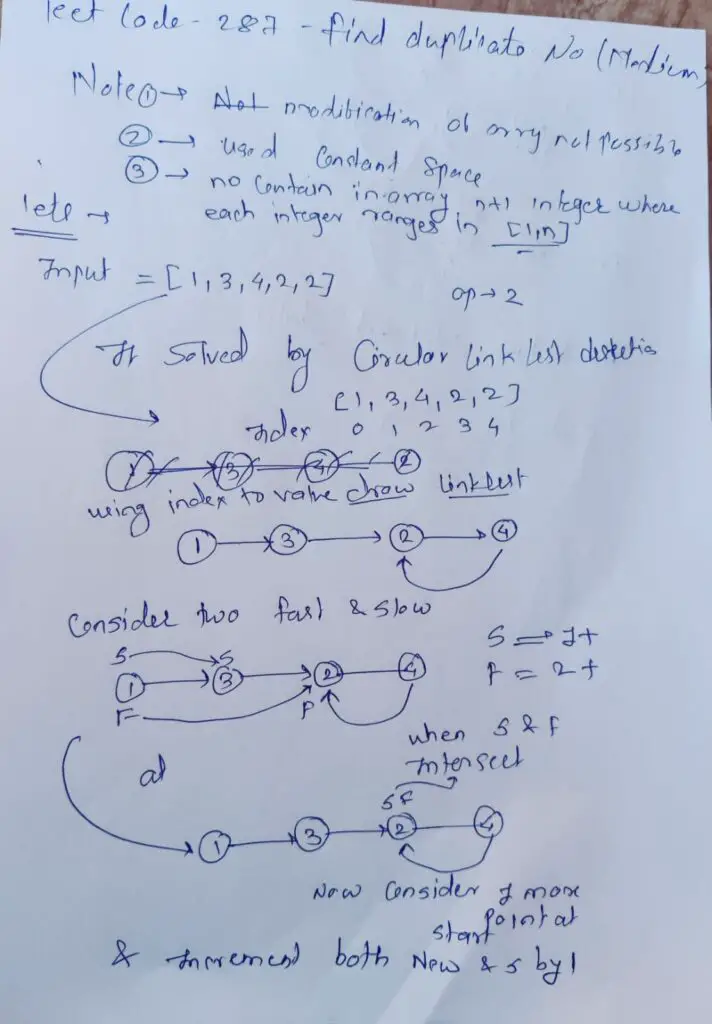 Leet Code - 287 - find duplicate No (Medium)
Note ① → Not modification of array not possible
② → used Constant Space
③ → no contain in array n+1 integer where
each integer ranges in [1,n]
lets →
Input = [1,3,4,2,2] op → 2
It Solved by Circular link list
[1, 3, 4, 2, 2]
Index 0 1 2 3 4
1 3 4 2
using index to value draw link list
1 → 3 → 2 → 4
Consider two fast & slow
S S
S ⇒ 1+
1 → 3 → 2 4
F = 2+
F F
when S & F
at
Intersect
S F
1 → 3 → 2 4
Now Consider 1 more
Point at
start
& Increment both New & S by 1